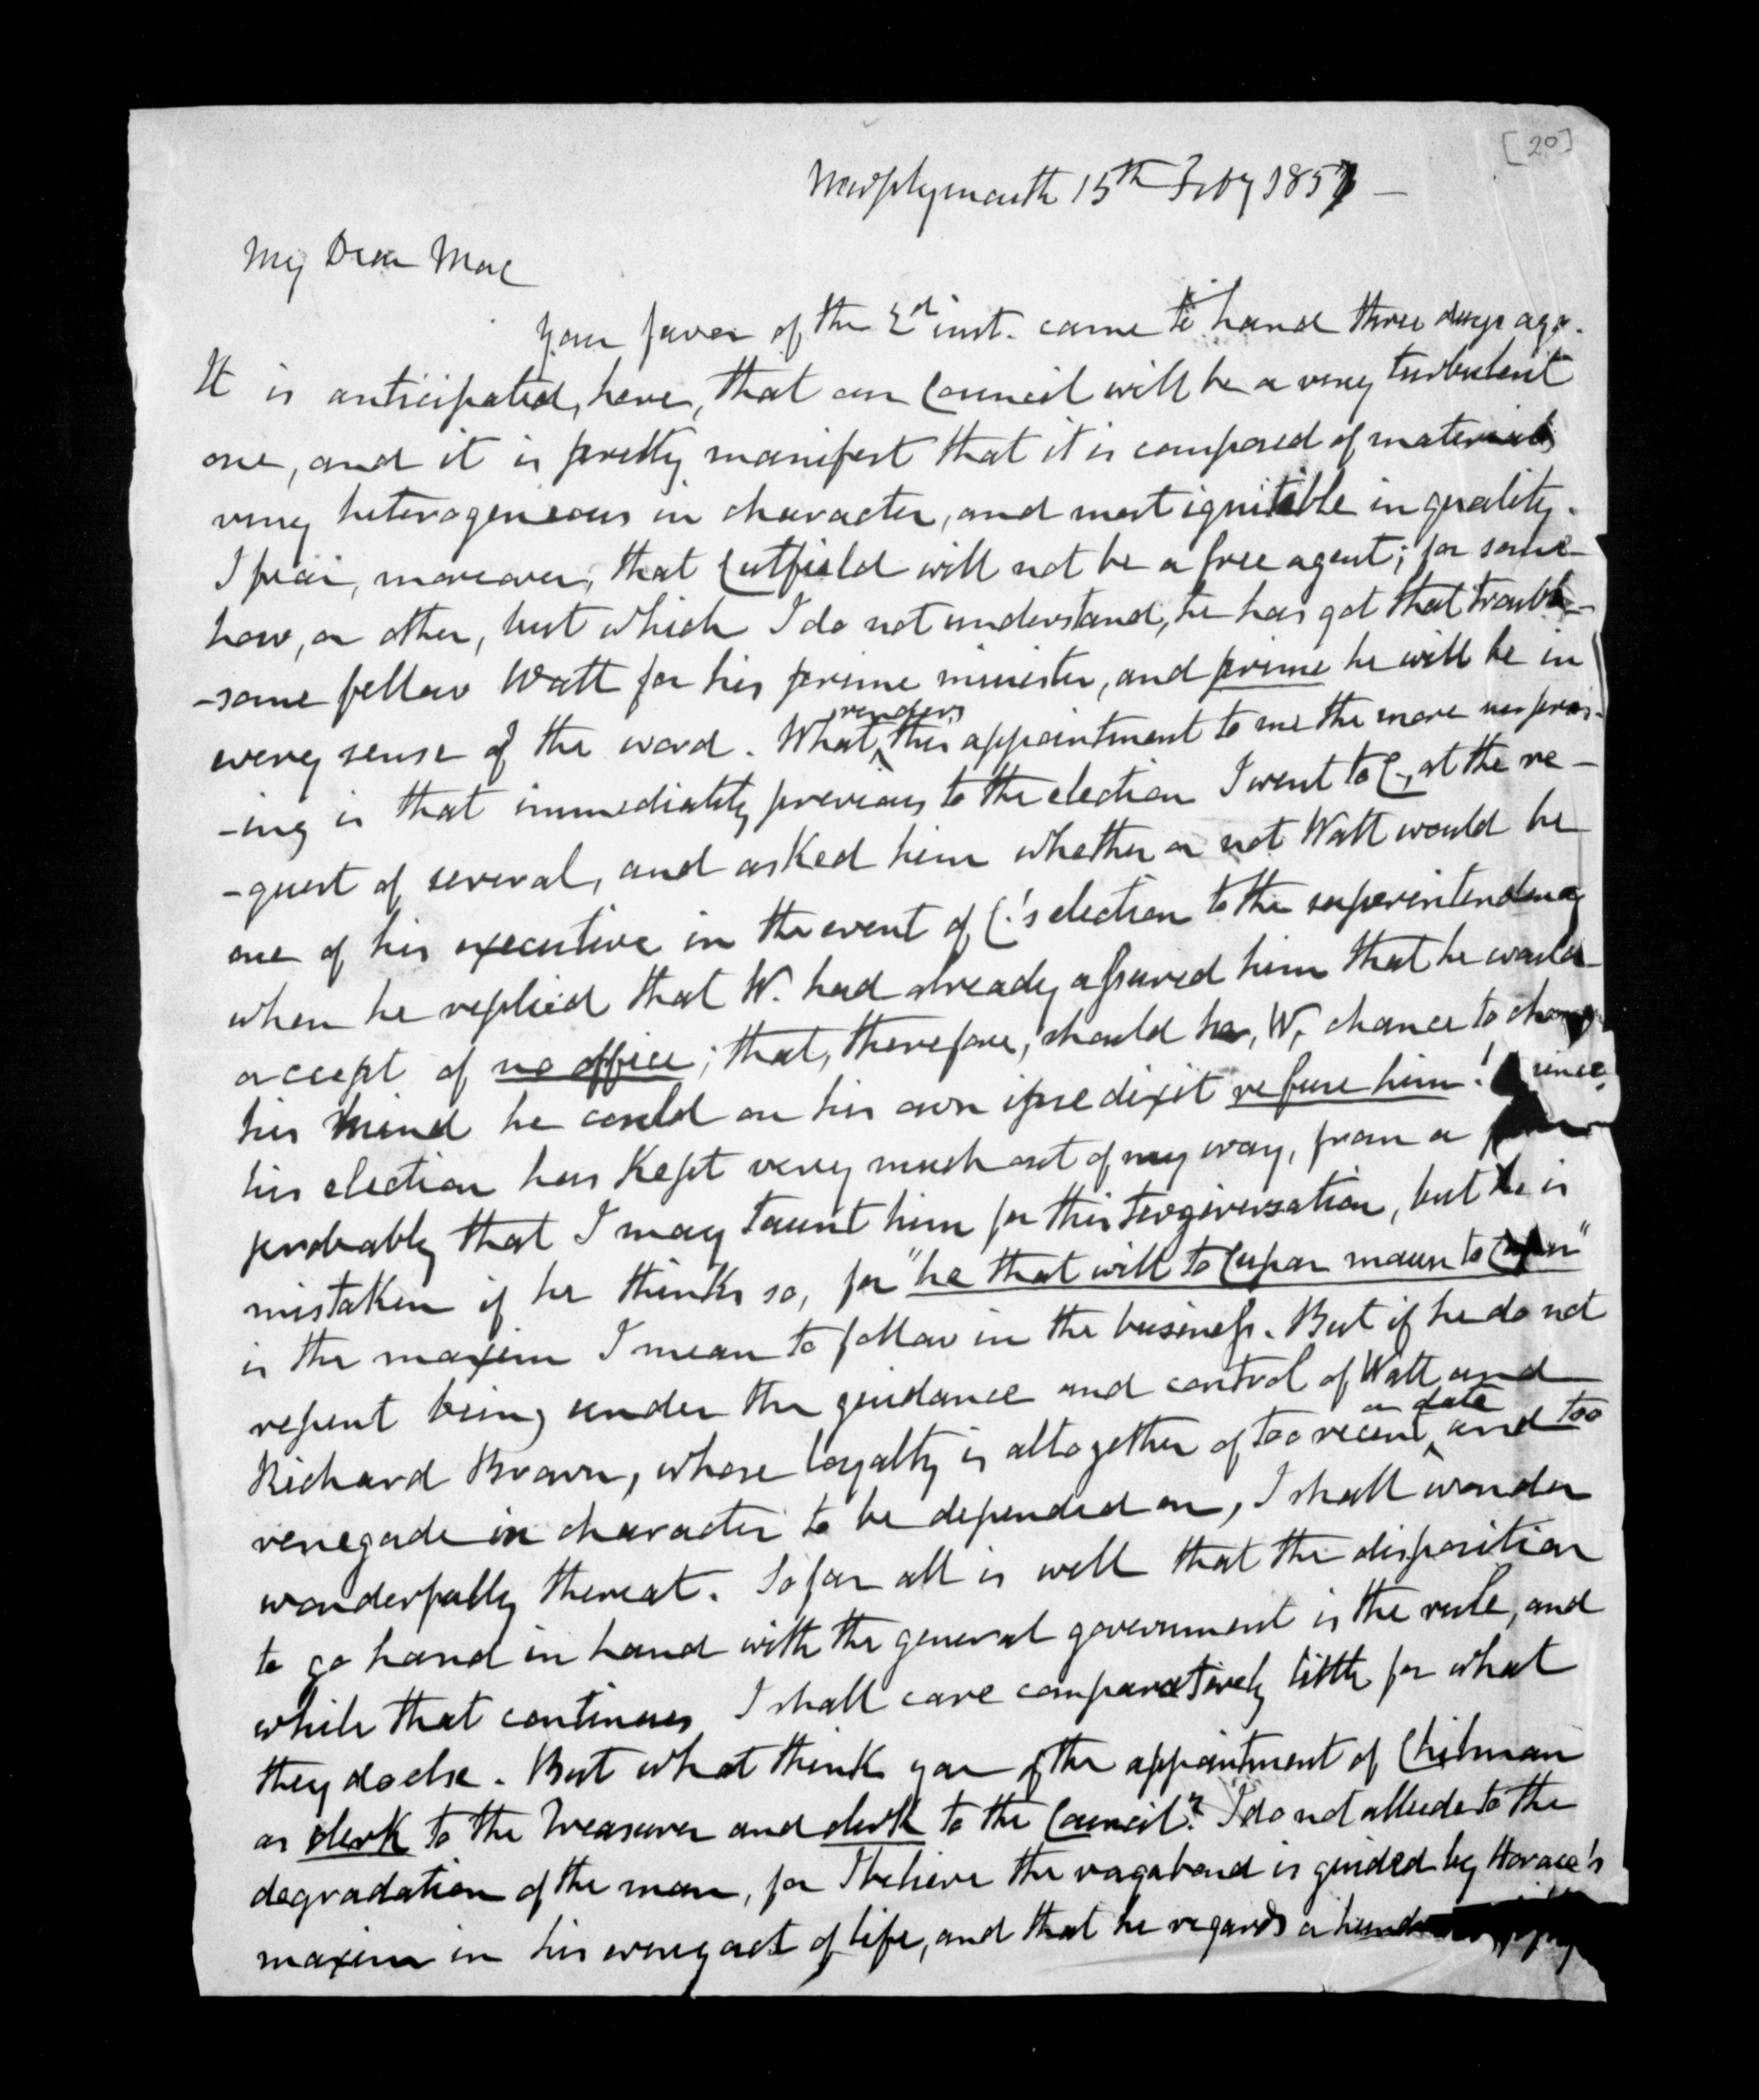 [20]
Newplymouth 15th Feby 1857 -
My Dear Mac
Your favor of the 2d inst. came to hand three days ago.
It is anticipated, here, that our Council will be a very turbulent
one, and it is pretty manifest that it is composed of materials
very heterogeneous in character, and most ignitible in quality.
I fear, moreover, that Cutfield will not be a free agent; for some-
how, or other, but which I do not understand, he has got that trouble-
-some fellow Watt for his prime minister, and prime he will be in
every sense of the word. What renders this appointment to me the more surpris-
-ing is that immediately previous to the election I went to C., at the re-
-quest of several, and asked him whether or not Watt would be
one of his executive in the event of C.'s election to the superintendency
when he replied that W. had already assured him that he would
accept of no office; that, therefore, should he, W, chance to change
his mind he could on his own ipse dixit refuse him! since
his election has kept very much out of my way, from a
probably that I may taunt him for this tergiversation, but he is
mistaken if he thinks so, for "he that will to Cupar maun to Cupar"
is the maxim I mean to follow in the business. But if he do not
repent being under the guidance and control of Watt and
Richard Brown, whose loyalty is altogether of too recent a date and too
renegade in character to be depended on, I shall wonder
wonderfully thereat. So far all is well that the disposition
to go hand in hand with the general government is the rule, and
while that continues I shall care comparatively little for what
they do else. But what think you of the appointment of Chilman
as clerk to the Treasurer and clerk to the Council? I do not allude to the
degradation of the man, for I believe the vagabond is guided by Horace's
maxim in his every act of life, and that he regards a